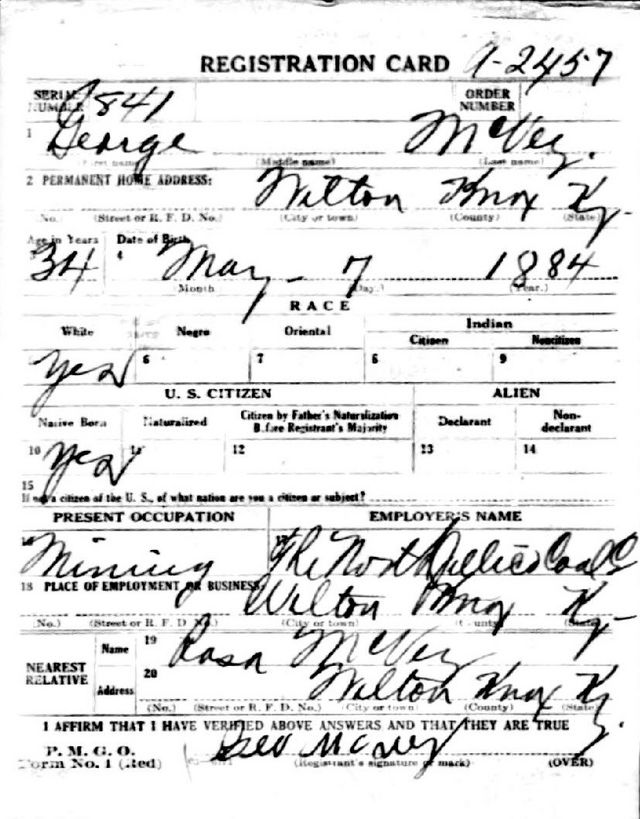 REGISTRATION CARD A-2457
SERIAL NUMBER 1841 ORDER NUMBER
1 George McVey.
(First name) (Middle name) (Last name)
2 PERMANENT HOME ADDRESS: Wilton Knox Ky.
(No.) (Street or R. F. D. No.) (City or town) (County) (State)
Age in Years Date of Birth
3 34 4 May - 7 1884
Month (Day.) (Year.)
RACE
White Negro Oriental Indian
Citizen Noncitizen
Yes 6 7 8 9
U. S. CITIZEN ALIEN
Native Born Naturalized Citizen by Father's Naturalization Before Registrant's Majority Declarant Non-declarant
10 Yes 11 12 13 14
15
If not a citizen of the U. S., of what nation are you a citizen or subject?
PRESENT OCCUPATION EMPLOYER'S NAME
Mining The North Jellico Coal Co
18 PLACE OF EMPLOYMENT OR BUSINESS
Wilton Knox Ky
(No.) (Street or R. F. D. No.) (City or town) (County) (State)
NEAREST RELATIVE
Name 19 Rosa McVey
Address 20 Wilton Knox Ky.
(No.) (Street or R. F. D. No.) (City or town) (County) (State)
I AFFIRM THAT I HAVE VERIFIED ABOVE ANSWERS AND THAT THEY ARE TRUE
P. M. G. O. Geo McVey
Form No. 1 (Red) (Registrant's signature or mark) (OVER)